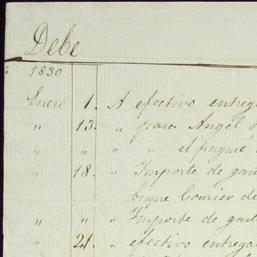 Debe
1830
Enero 1. A efectivo entreg
" 13. " para Angel
" " " " el pague
" 18. " Importe de gan
buque Courier de
" " " Importe de gast
" 21. " efectivo entrega